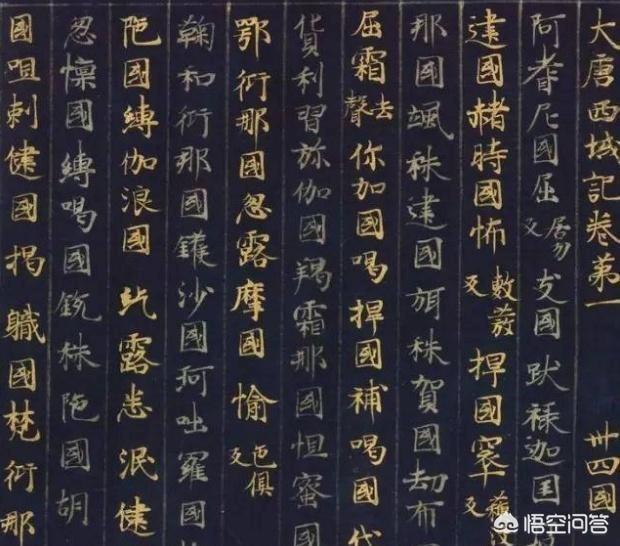 大唐西域記卷第一 卅四國
阿耆尼國屈居勿反支國跋祿迦国
建國赭時國怖敷發反捍國窣
那國颯秣建國弭秣賀國劫布
屈霜去聲你加國喝捍國補喝國代
貨利習弥伽國羯霜那國怛蜜國
鄂衍那國忽露摩國愉色俱反
鞠和衍那國鑊沙國珂咄羅國
陁國縛伽浪國紇露悉泯健
忽懍國縛喝國銳秣陁國胡
國呾剌健國揭職國梵衍那
悟空问答